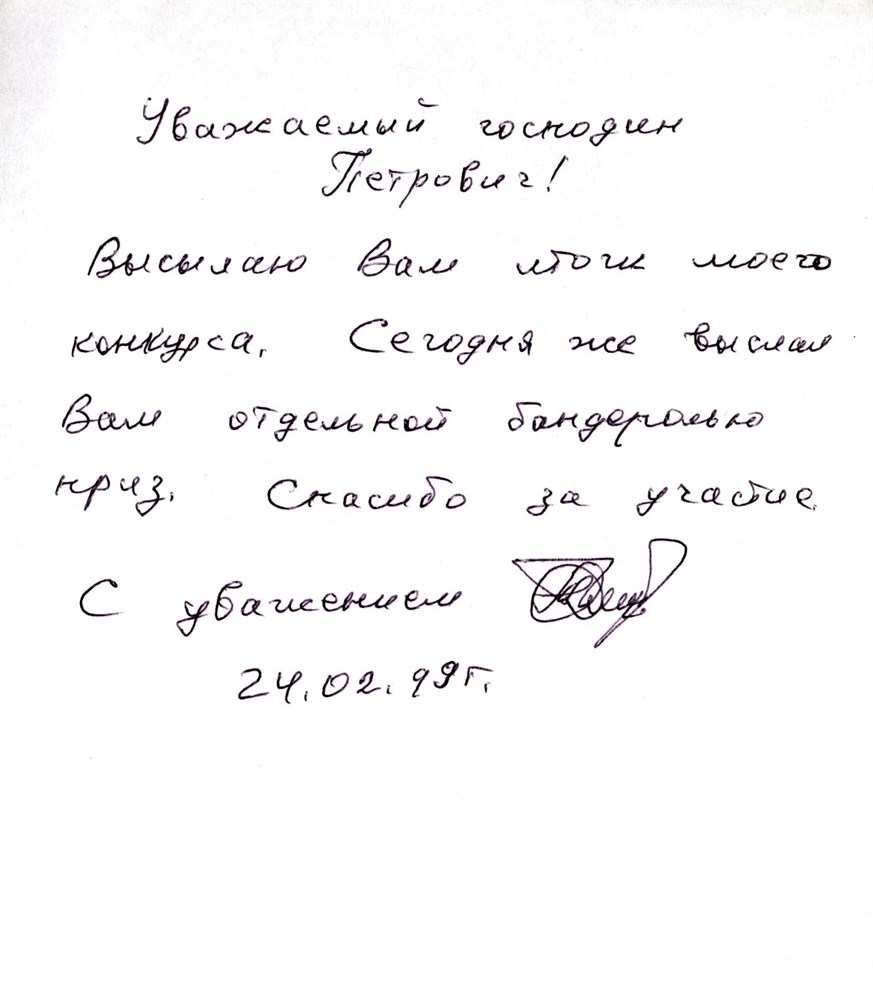 Уважаемый господин
Петрович!
Высылаю Вам итоги моего
конкурса. Сегодня же выслал
Вам отдельной бандеролью
приз. Спасибо за участие.
С уважением
24.02.99г.